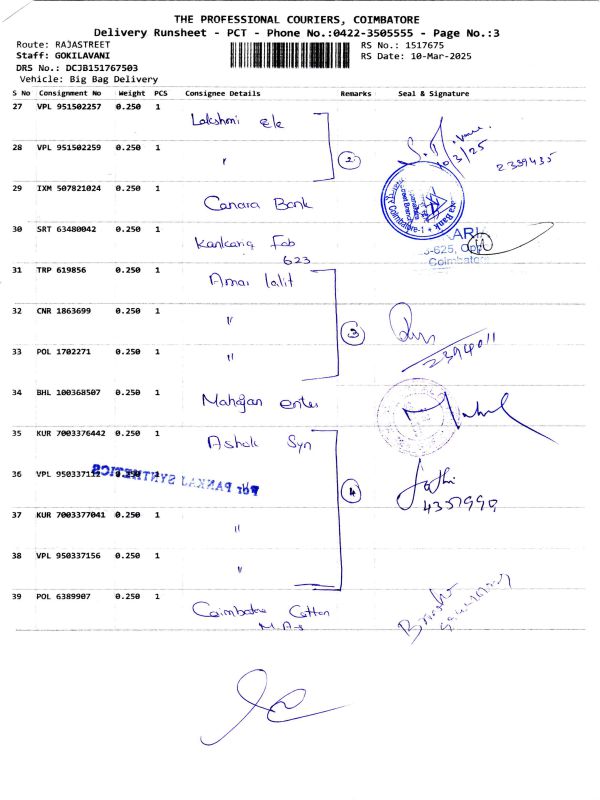 THE PROFESSIONAL COURIERS, COIMBATORE
Delivery Runsheet - PCT - Phone No.:0422-3505555 - Page No.:3
Route: RAJASTREET
Staff: GOKILAVANI
DRS No.: DCJB151767503
Vehicle: Big Bag Delivery
RS No.: 1517675
RS Date: 10-Mar-2025
S No Consignment No Weight PCS Consignee Details Remarks Seal & Signature
27 VPL 951502257 0.250 1 Lakshmi ele
28 VPL 951502259 0.250 1 " 2
10/3/25 2339435
29 IXM 507821024 0.250 1 Canara Bank
Coimbatore-1
30 SRT 63480042 0.250 1 Kankariq Fab
623
Coimbatore
31 TRP 619856 0.250 1 Amar lalit
32 CNR 1863699 0.250 1 " 3
33 POL 1702271 0.250 1 "
2394011
34 BHL 100368507 0.250 1 Mahajan enter
35 KUR 7003376442 0.250 1 Ashok Syn
36 VPL 950337112 0.250 1 4
For PANKAJ SYNTHETICS
4357990
37 KUR 7003377041 0.250 1 "
38 VPL 950337156 0.250 1 "
39 POL 6389907 0.250 1 Coimbatore Cotton